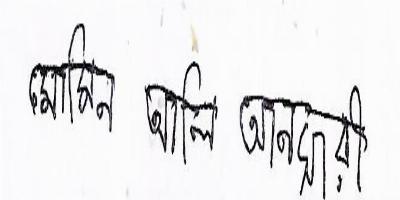 মোমিন আলি আনছারী